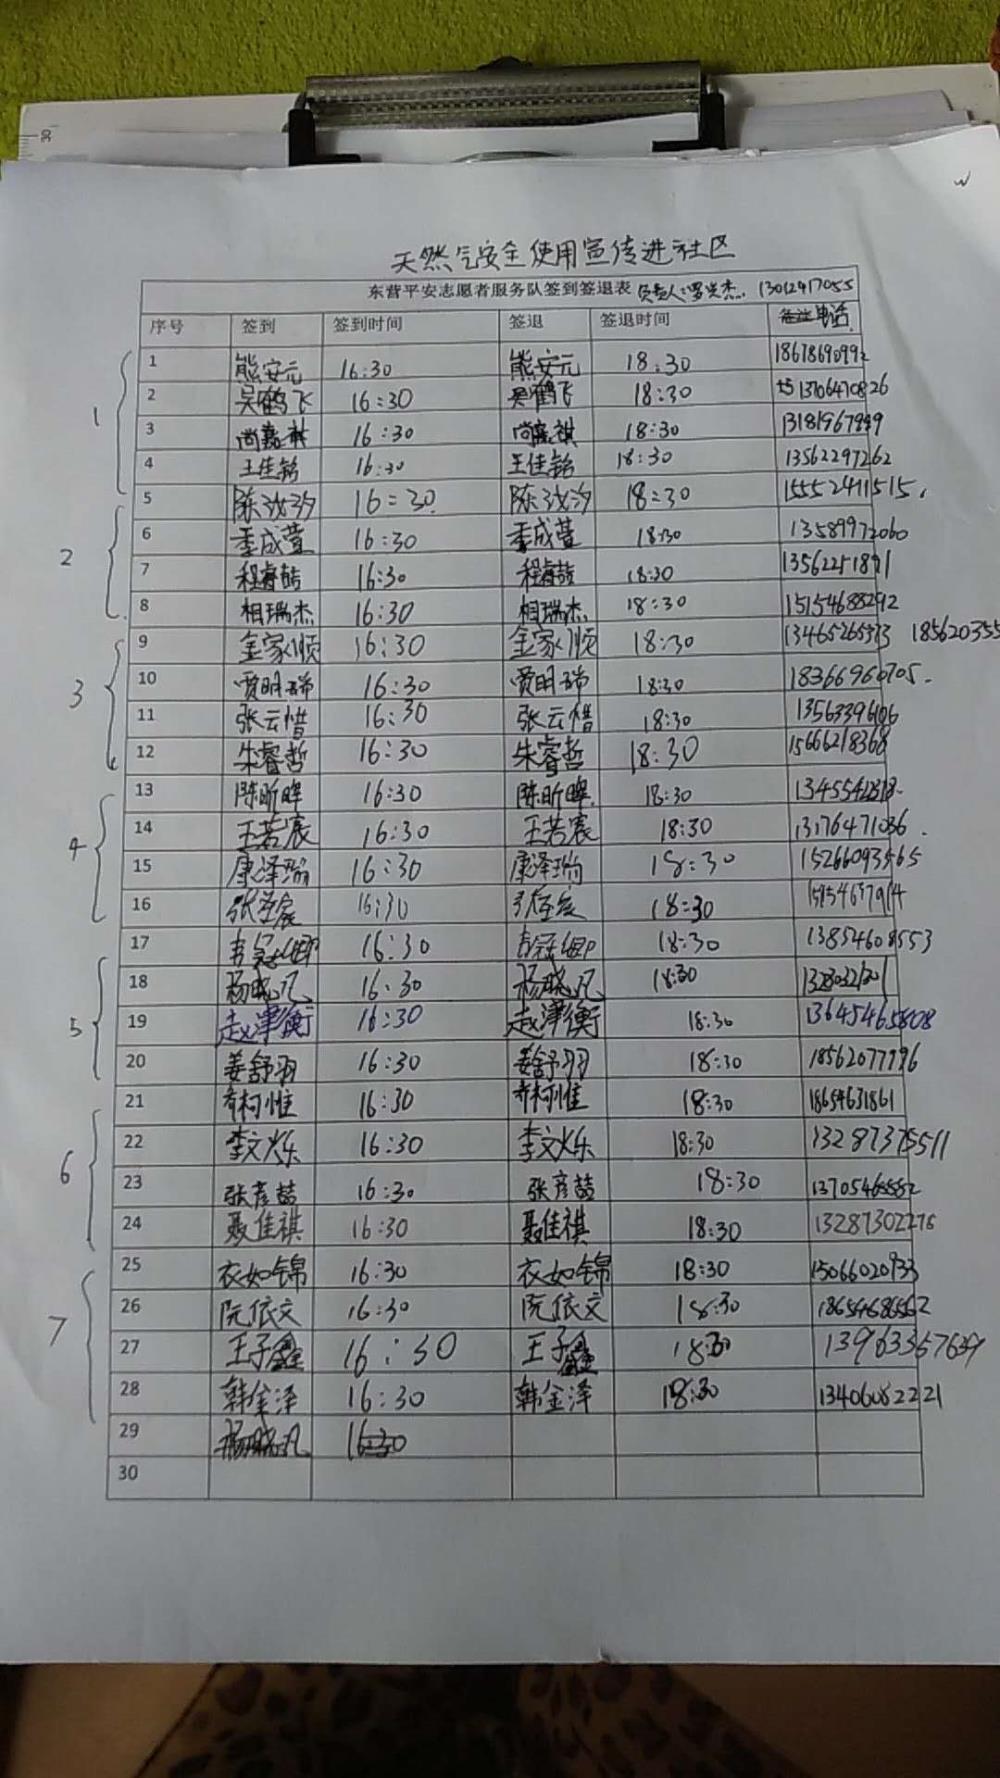 天然气安全使用宣传进社区
东营平安志愿者服务队签到签退表 负责人: 13012917055
序号 签到 签到时间 签退 签退时间 电话
1 熊安元 16:30 熊安元 18:30
2 吴鹤飞 16:30 吴鹤飞 18:30 13706470826
3 尚嘉祺 16:30 尚嘉祺 18:30
4 王佳铭 16:30 王佳铭 18:30 13562297262
5 陈汐 16:30 陈汐 18:30 15552411515
6 季成萱 16:30 季成萱 18:30 13589972060
7 程睿喆 16:30 程睿喆 18:30 13562251891
8 相瑞杰 16:30 相瑞杰 18:30 15154688292
9 金家顺 16:30 金家顺 18:30 13465265373 185620355
10 贾明瑞 16:30 贾明瑞 18:30 18366960705
11 张云惜 16:30 张云惜 18:30 13563396106
12 朱睿哲 16:30 朱睿哲 18:30 15666218368
13 陈昕晖 16:30 陈昕晖 18:30
14 王若宸 16:30 王若宸 18:30 13176471086
15 康泽瑞 16:30 康泽瑞 18:30 15266093565
16 张圣宸 16:30 张圣宸 18:30
17 16:30 18:30 13854608553
18 杨晓凡 16:30 杨晓凡 18:30
19 赵津衡 16:30 赵津衡 18:30 13645465808
20 姜舒羽 16:30 姜舒羽 18:30 18562077796
21 柯惟 16:30 柯惟 18:30 18654631861
22 李文烁 16:30 李文烁 18:30 13287375511
23 张彦喆 16:30 张彦喆 18:30
24 聂佳祺 16:30 聂佳祺 18:30 13287302276
25 衣如锦 16:30 衣如锦 18:30 15066020933
26 阮依文 16:30 阮依文 18:30 18654686562
27 王子鑫 16:30 王子鑫 18:30
28 韩金泽 16:30 韩金泽 18:30 13406082221
29 杨晓凡 16:30
30
1
2
3
4
5
6
7